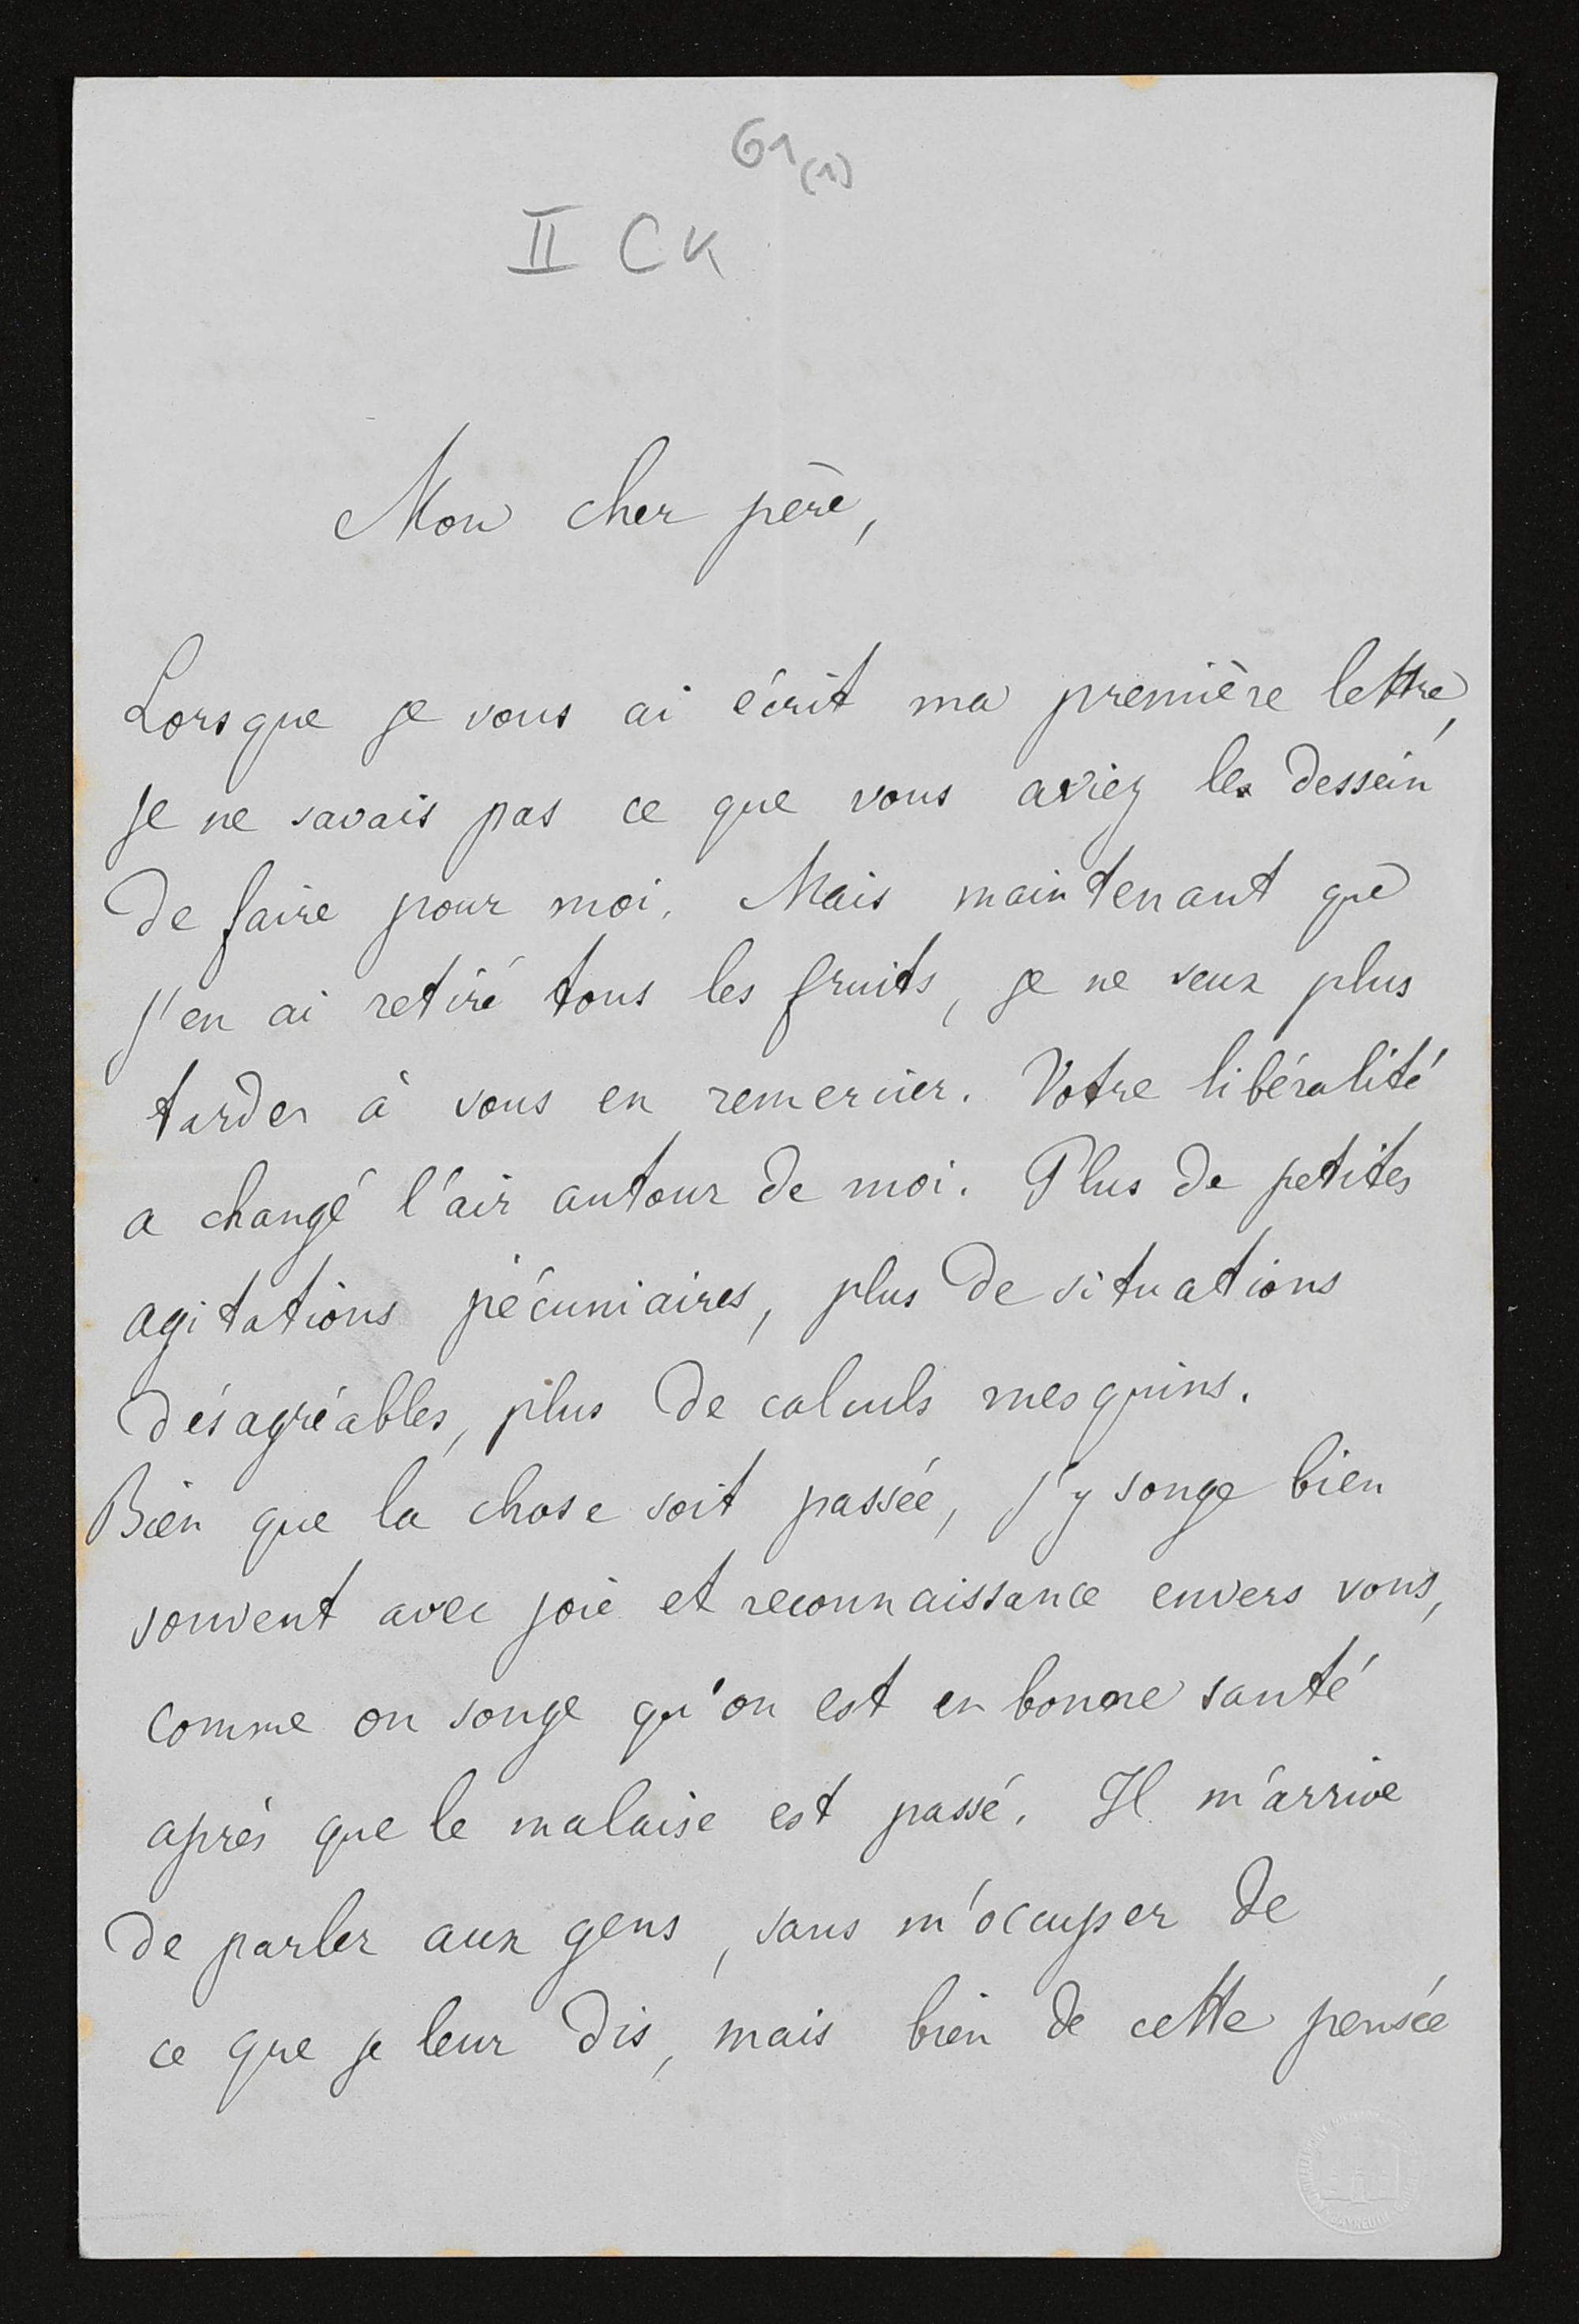 61 (1)
II CK
Mon cher père,
Lorsque je vous ai écrit ma première lettre,
je ne savais pas ce que vous aviez le dessein
de faire pour moi. Mais maintenant que
j'en ai retiré tous les fruits, je ne veux plus
tarder à vous en remercier. Votre libéralité
a changé l'air autour de moi. Plus de petites
agitations pécuniaires, plus de situations
désagréables, plus de calculs mesquins.
Bien que la chose soit passée, j'y songe bien
souvent avec joie et reconnaissance envers vous,
comme on songe qu'on est en bonne santé
après que le malaise est passé. Il m'arrive
de parler aux gens, sans m'occuper de
ce que je leur dis, mais bien de cette pensée